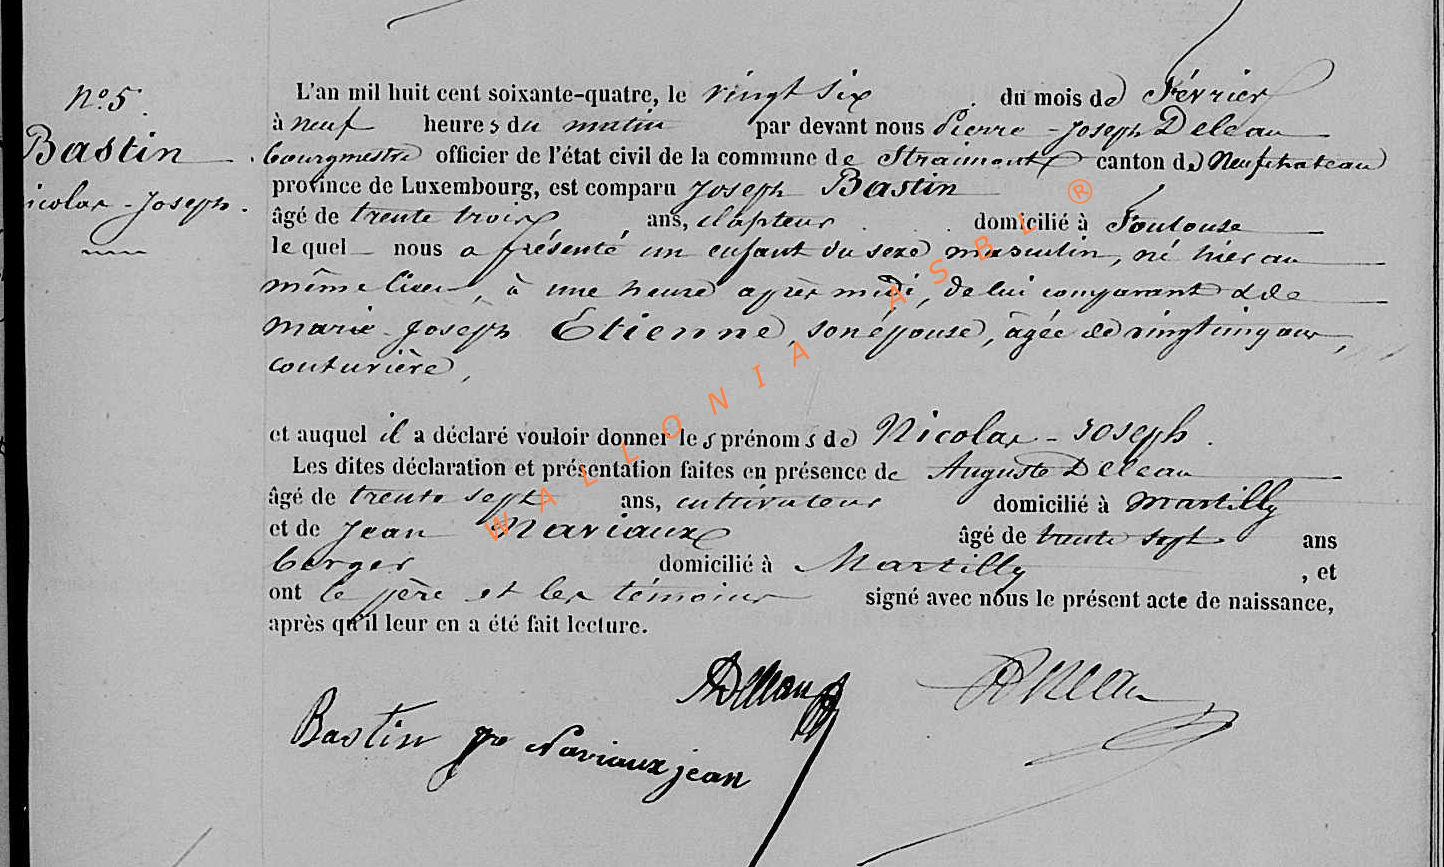 N° 5.
Bastin
icolas - Joseph.
L'an mil huit cent soixante-quatre, le vingt six du mois de Février
à neuf heures du matin par devant nous Pierre - Joseph Deleau
bourgmestre officier de l'état civil de la commune de Straimont, canton de Neufchateau
province de Luxembourg, est comparu Joseph Bastin
âgé de trente trois ans, domicilié à Toulouse
le quel nous a présenté un enfant du sexe masculin, né hier au
même lieu, à une heure après midi, de lui comparant & de
Marie - Joseph Etienne, son épouse, âgée de vingt cinq ans,
couturière,
et auquel il a déclaré vouloir donner les prénoms de Nicolas - Joseph.
Les dites déclaration et présentation faites en présence de Auguste Deleau
âgé de trente sept ans, cultivateur domicilié à Martilly
et de Jean Naviaux âgé de trente sept ans
berger domicilié à Martilly, et
ont le père et les témoins signé avec nous le présent acte de naissance,
après qu'il leur en a été fait lecture.
ADeleau
Deleau
Bastin
Naviaux jean
WALLONIA ASBL ®